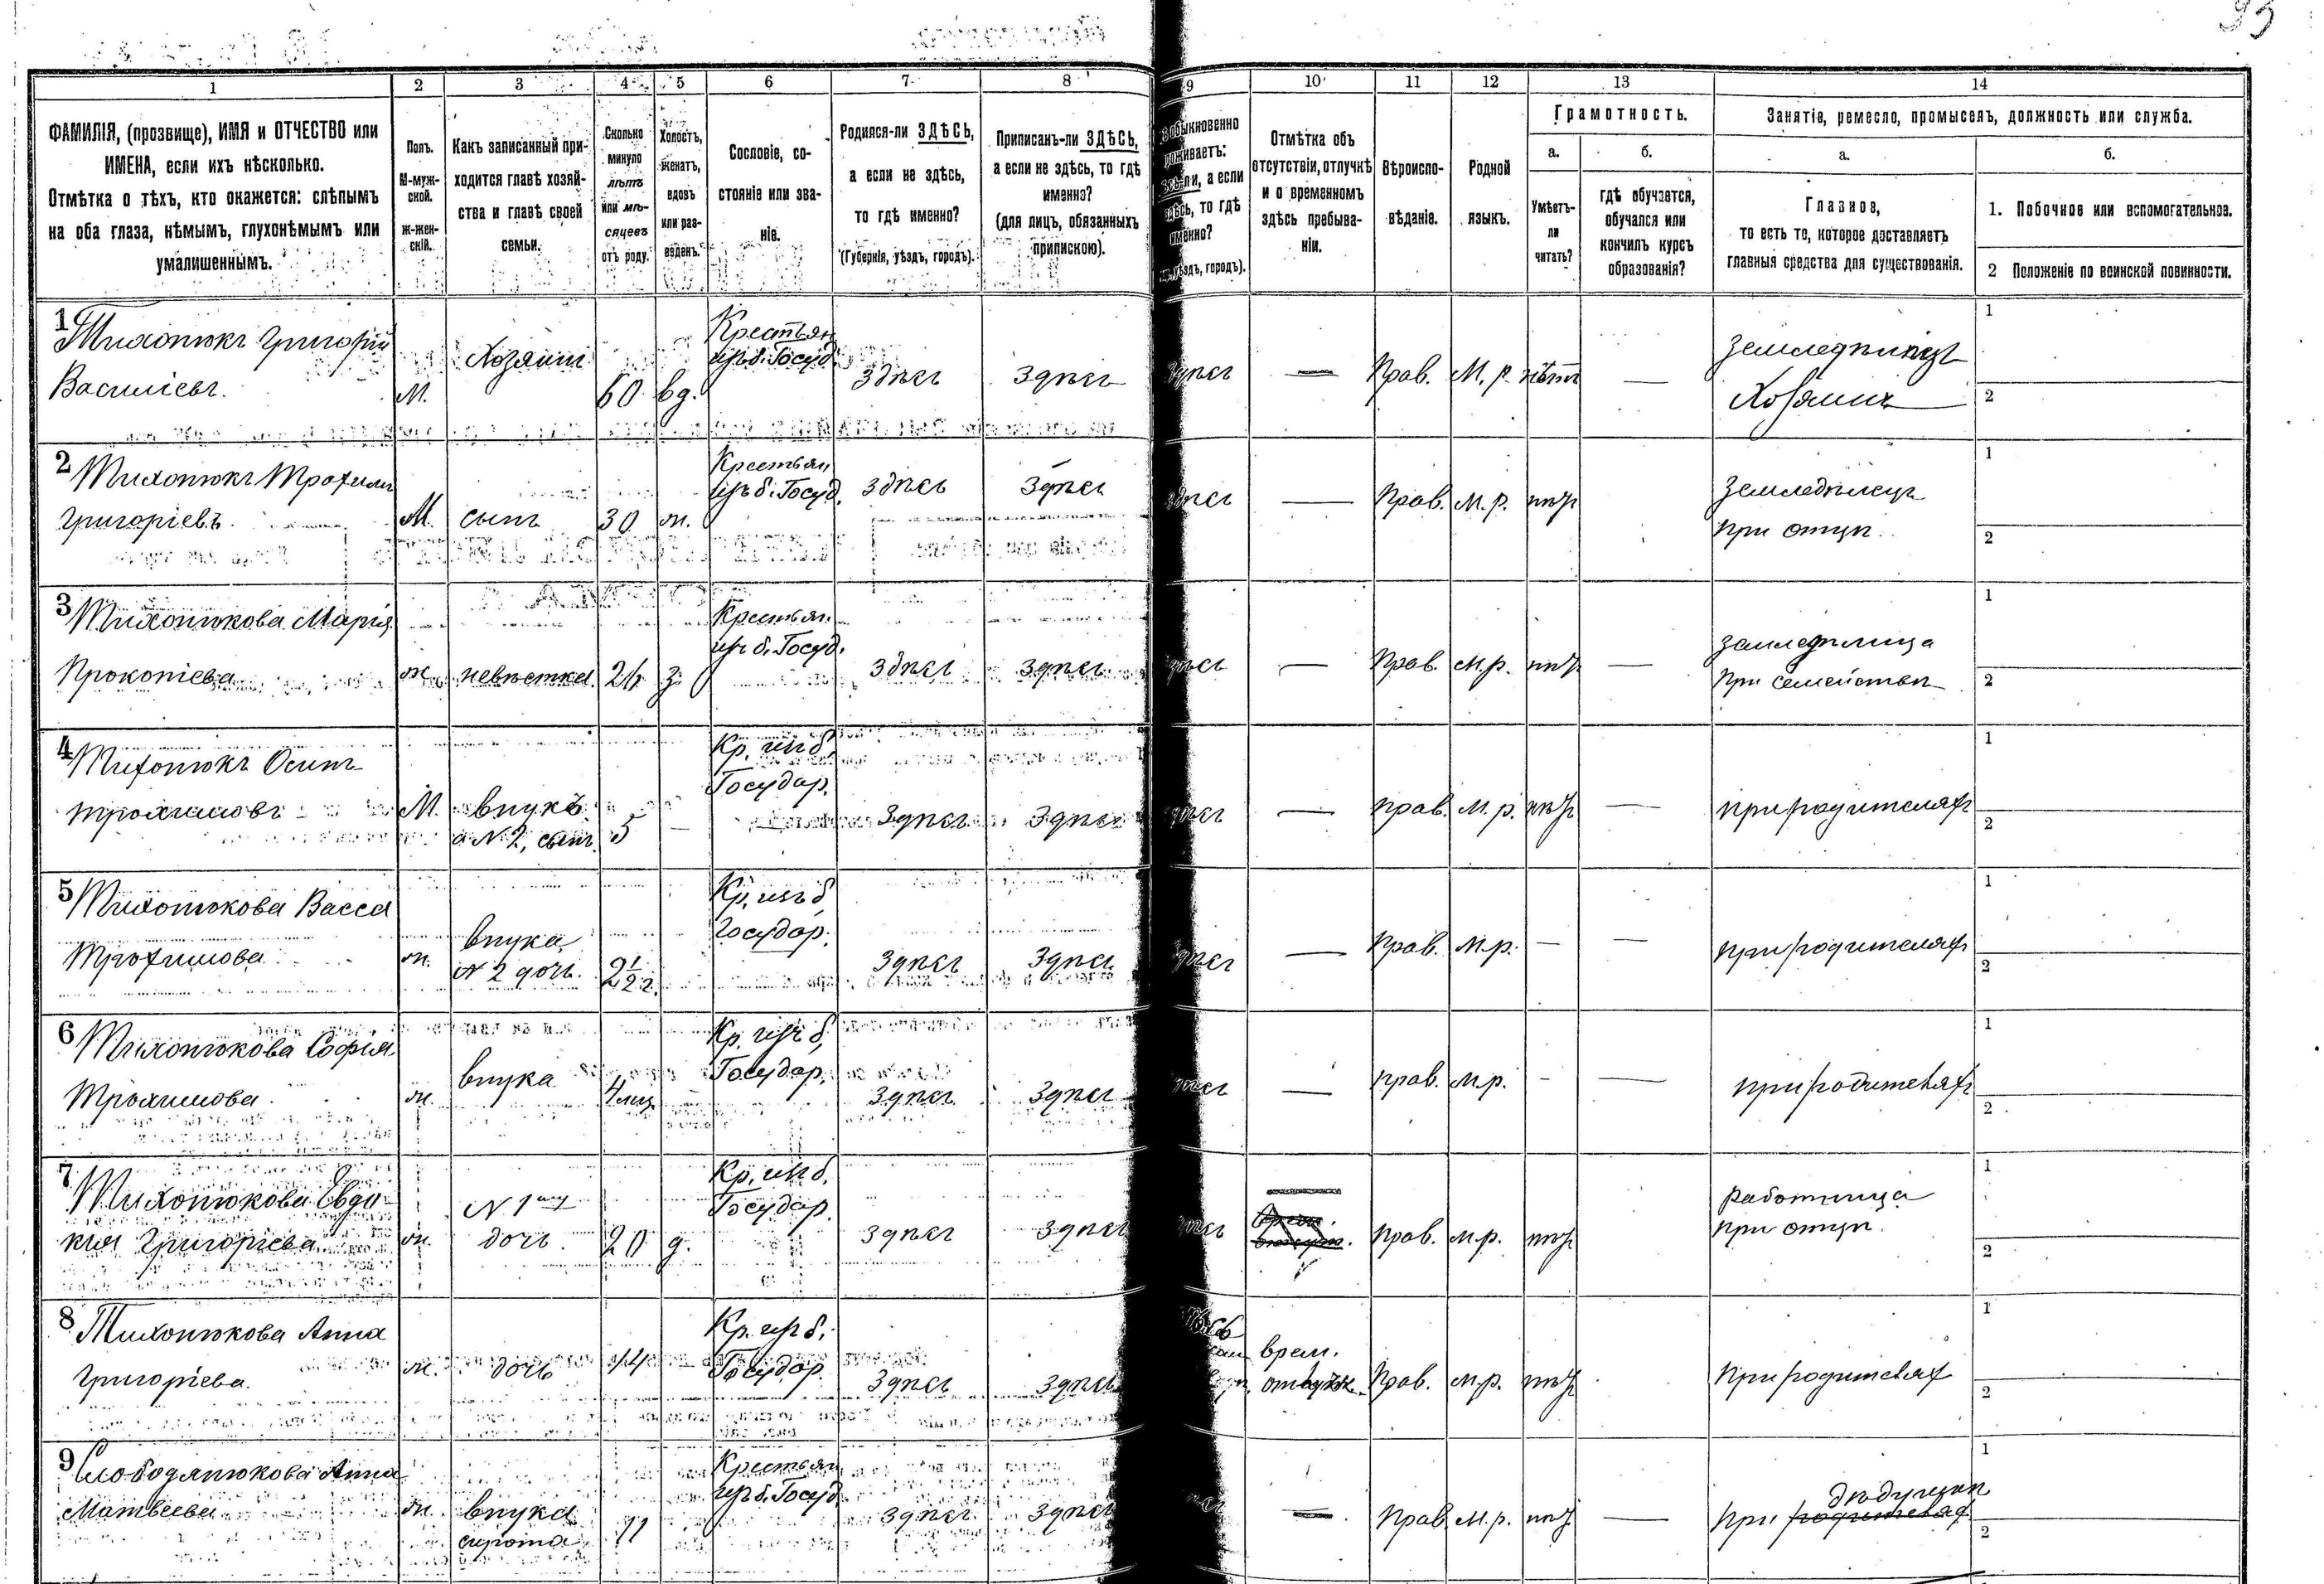 95
1 2 3 4 5 6 7 8 9 10 11 12 13 14
ФАМИЛІЯ, (прозвище), ИМЯ и ОТЧЕСТВО или
ИМЕНА, если ихъ нѣсколько.
Отмѣтка о тѣхъ, кто окажется: слѣпымъ
на оба глаза, нѣмымъ, глухонѣмымъ или
умалишеннымъ.
Полъ.
М-муж-
ской.
Ж-жен-
скій.
Какъ записанный при-
ходится главѣ хозяй-
ства и главѣ своей
семьи.
Сколько
минуло
лѣтъ
или мѣ-
сяцевъ
отъ роду.
Холостъ,
женатъ,
вдовъ
или раз-
веденъ.
Сословіе, со-
стояніе или зва-
ніе.
Родился-ли ЗДѢСЬ,
а если не здѣсь,
то гдѣ именно?
(Губернія, уѣздъ, городъ).
Приписанъ-ли ЗДѢСЬ,
а если не здѣсь, то гдѣ
именно?
(для лицъ, обязанныхъ
припискою).
обыкновенно
проживаетъ:
а если
то гдѣ
именно?
уѣздъ, городъ).
Отмѣтка объ
отсутствіи, отлучкѣ
и о временномъ
здѣсь пребыва-
ніи.
Вѣроиспо-
вѣданіе.
Родной
языкъ.
Грамотность.
а.
Умѣетъ-
ли
читать?
б.
гдѣ обучается,
обучался или
кончилъ курсъ
образованія?
Занятіе, ремесло, промыселъ, должность или служба.
а.
Главное,
то есть то, которое доставляетъ
главныя средства для существованія.
б.
1. Побочное или вспомогательное.
2 Положеніе по воинской повинности.
1 Тихонюкъ Григорій
Василіевъ.
М.
Хозяинъ
60
вд.
Крестьян
изъ б. Госуд.
здѣсь
здѣсь
здѣсь
—
Прав.
М. р.
нѣтъ
—
Земледѣлецъ
Хозяинъ
1
2
2 Тихонюкъ Трофимъ
Григоріевъ.
М.
сынъ
30
ж.
Крестьян
изъ б. Госуд.
здѣсь
здѣсь
здѣсь
—
Прав.
М. р.
нѣтъ
Земледѣлецъ
при отцѣ.
1
2
3 Тихонюкова Марія
Прокопіева
ж.
невѣстка
з.
Крестьян.
изъ б. Госуд.
здѣсь
здѣсь
здѣсь
—
Прав.
М. р.
нѣтъ
—
земледѣлица
при семействѣ
1
2
4 Тихонюкъ Осипъ
Трохимовъ
М.
внукъ
а N 2, сынъ.
5
—
Кр. изъ б.
Государ.
здѣсь
здѣсь
здѣсь
—
прав.
М. р.
нѣтъ
—
при родителяхъ
1
2
5 Тихонюкова Васса
Трофимова
ж.
внука
N 2 дочь.
2½ г.
Кр. изъ б
Государ.
здѣсь
здѣсь
здѣсь
—
Прав.
М. р.
—
—
при родителяхъ
1
2
6 Тихонюкова Софія
Трохимова.
ж.
внука
4 мѣс.
Кр. изъ б.
Государ.
здѣсь
здѣсь
здѣсь
—
прав.
М. р.
-
—
при родителяхъ
1
2
7 Тихонюкова Евдо-
кія Григоріева
ж.
N 1
дочь.
20
д.
Кр. изъ б.
Государ.
здѣсь
здѣсь
здѣсь
—
Прав.
М. р.
нѣтъ
работница
при отцѣ.
1
2
8 Тихонюкова Анна
Григоріева.
ж.
дочь
14
Кр. изъ б.
Государ
здѣсь
здѣсь
врем.
отлуч.
Прав.
М. р.
нѣтъ
при родителях
1
2
9 Слободянюкова Анна
Матвеева
ж.
внука
сирота
11
Крестьян
изъ б. Госуд
здѣсь
здѣсь
—
Прав
М. р.
нѣтъ
—
дѣдушкѣ
при родителях
1
2